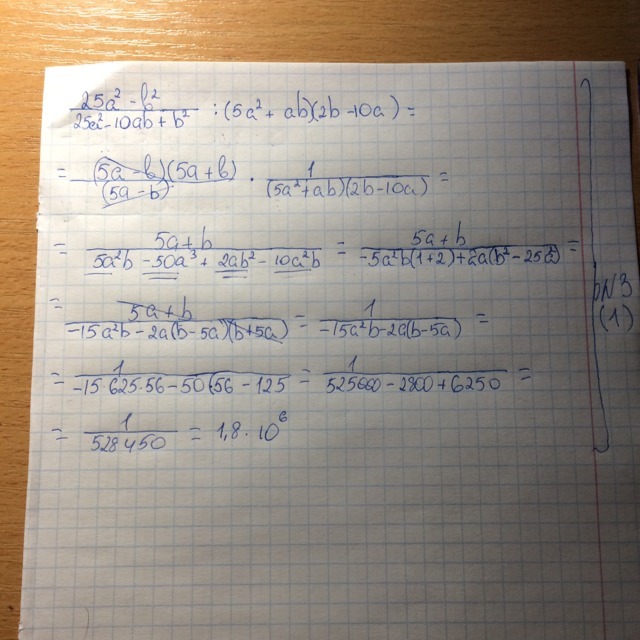 (25a² - b²)/(25a² - 10ab + b²) : (5a² + ab)(2b - 10a) =
= (5a - b)(5a + b)/(5a - b) · 1/((5a² + ab)(2b - 10a)) =
= (5a + b)/(5a²b - 50a³ + 2ab² - 10a²b) = (5a + b)/(-5a²b(1+2) + 2a(b² - 25a²)) =
= (5a + b)/(-15a²b - 2a(b - 5a)(b + 5a)) = 1/(-15a²b - 2a(b - 5a)) =
= 1/(-15·625·56 - 50(56 - 125 = 1/(525660 - 2800 + 6250) =
= 1/528450 = 1,8 · 10⁶
N3
(1)